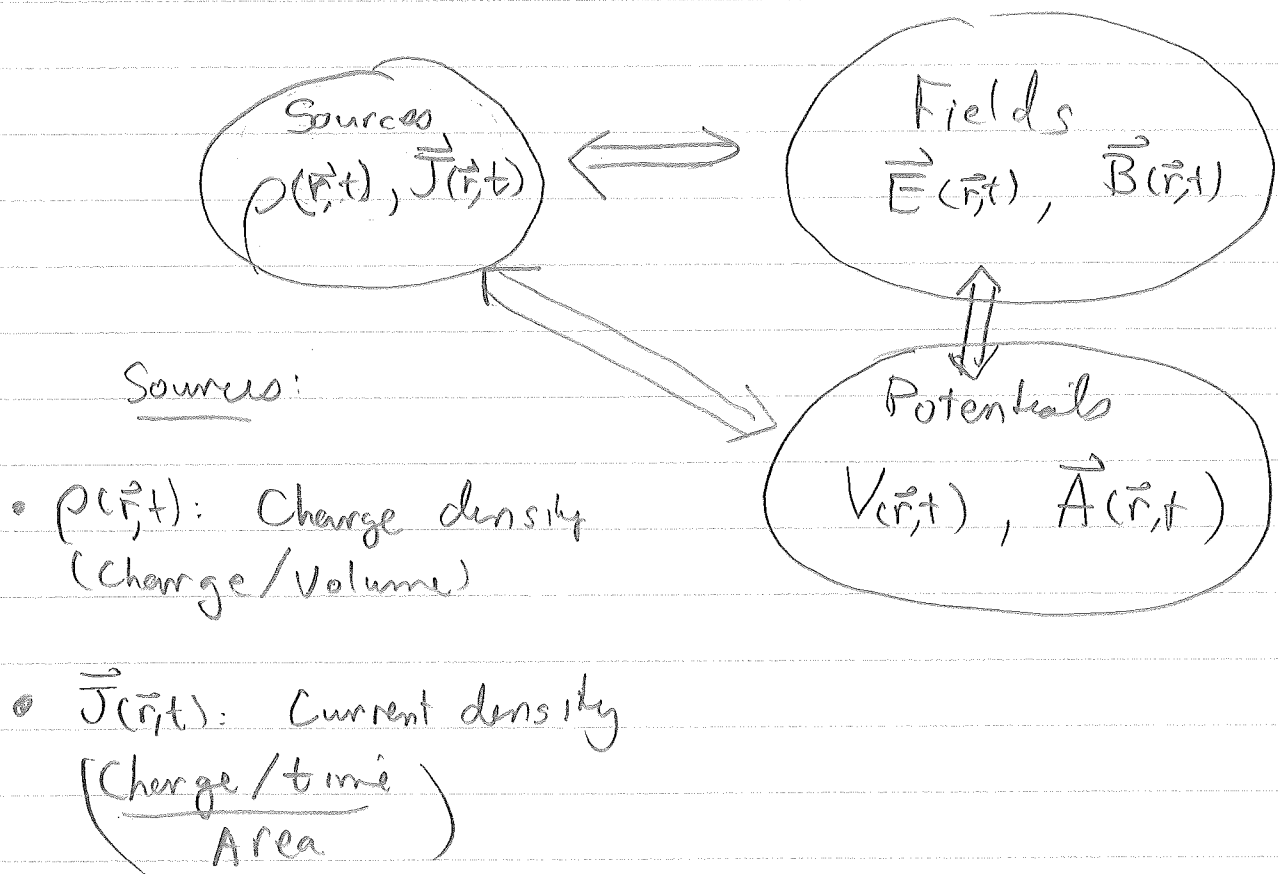 Sources
ρ(r⃗,t), J⃗(r⃗,t)
Fields
E⃗(r⃗,t), B⃗(r⃗,t)
Potentials
V(r⃗,t), A⃗(r⃗,t)
Sources:
• ρ(r⃗,t): Charge density
(Charge/Volume)
• J⃗(r⃗,t): Current density
(Charge/time
Area)